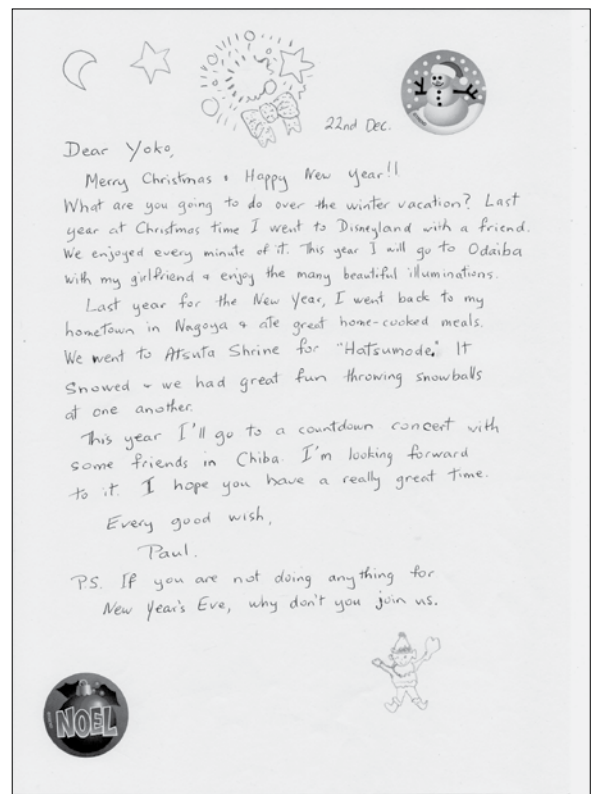 22nd Dec.
Dear Yoko,
Merry Christmas & Happy New Year!!
What are you going to do over the winter vacation? Last
year at Christmas time I went to Disneyland with a friend.
We enjoyed every minute of it. This year I will go to Odaiba
with my girlfriend & enjoy the many beautiful illuminations.
Last year for the New Year, I went back to my
hometown in Nagoya & ate great home-cooked meals.
We went to Atsuta Shrine for "Hatsumode." It
snowed & we had great fun throwing snowballs
at one another.
This year I'll go to a countdown concert with
some friends in Chiba. I'm looking forward
to it. I hope you have a really great time.
Every good wish,
Paul.
P.S. If you are not doing anything for
New Year's Eve, why don't you join us.
NOEL